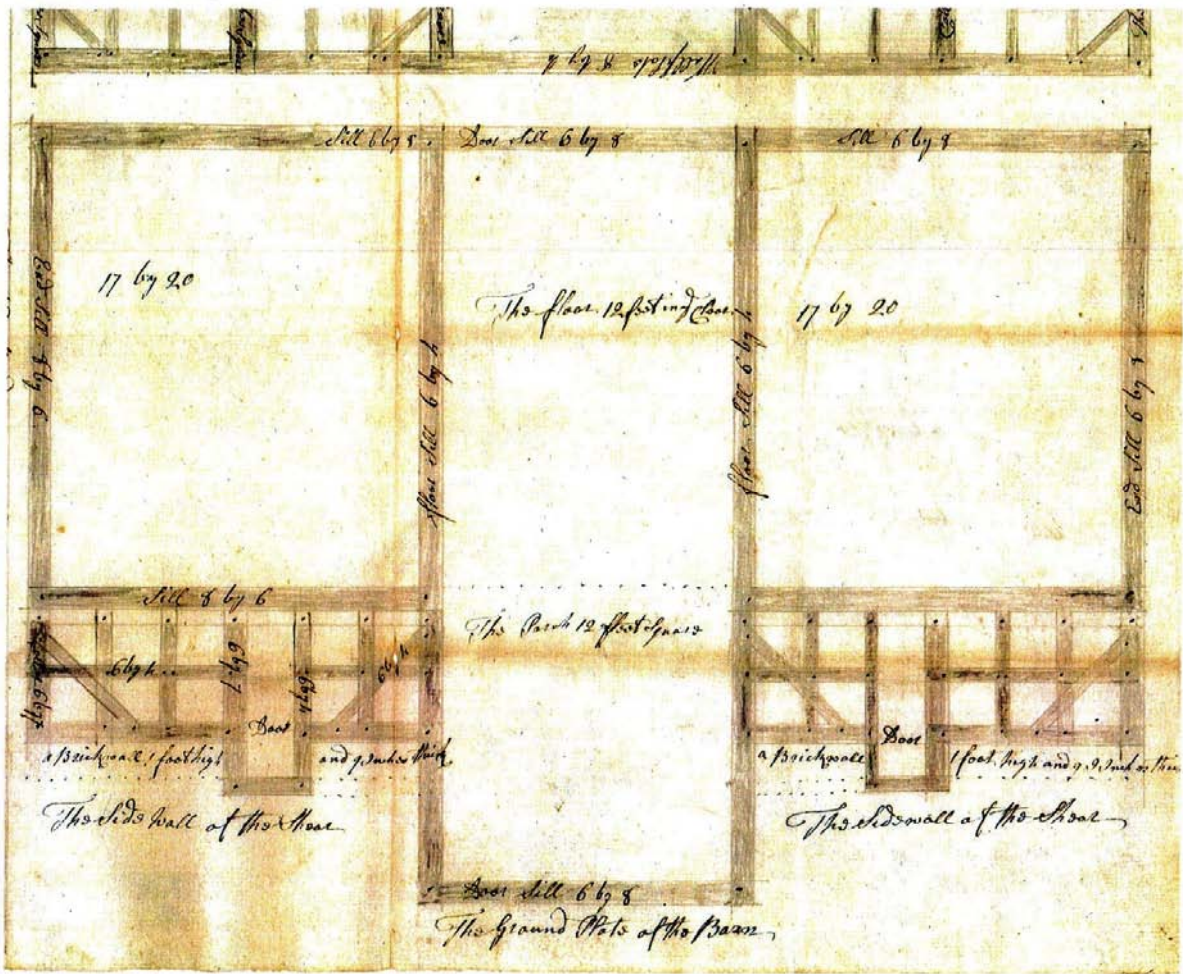 Wall plate 8 by 6
Sill 6 by 8
Door Sill 6 by 8
Sill 6 by 8
End Sill 8 by 6
17 by 20
The floor 12 feet in
17 by 20
floor Sill 6 by 4
floor Sill 6 by 4
End Sill 6 by 8
Sill 8 by 6
The Porch 12 feet Square
6 by 4
6 by 7
6 by 4
6 by 4
Door
Door
a Brickwall 1 foot high
and 9 Inches thick
a Brickwall
1 foot high and 9 Inches thic
The Side Wall of the Shear
The Sidewall of the Shear
Door Sill 6 by 8
The Ground Plate of the Barn